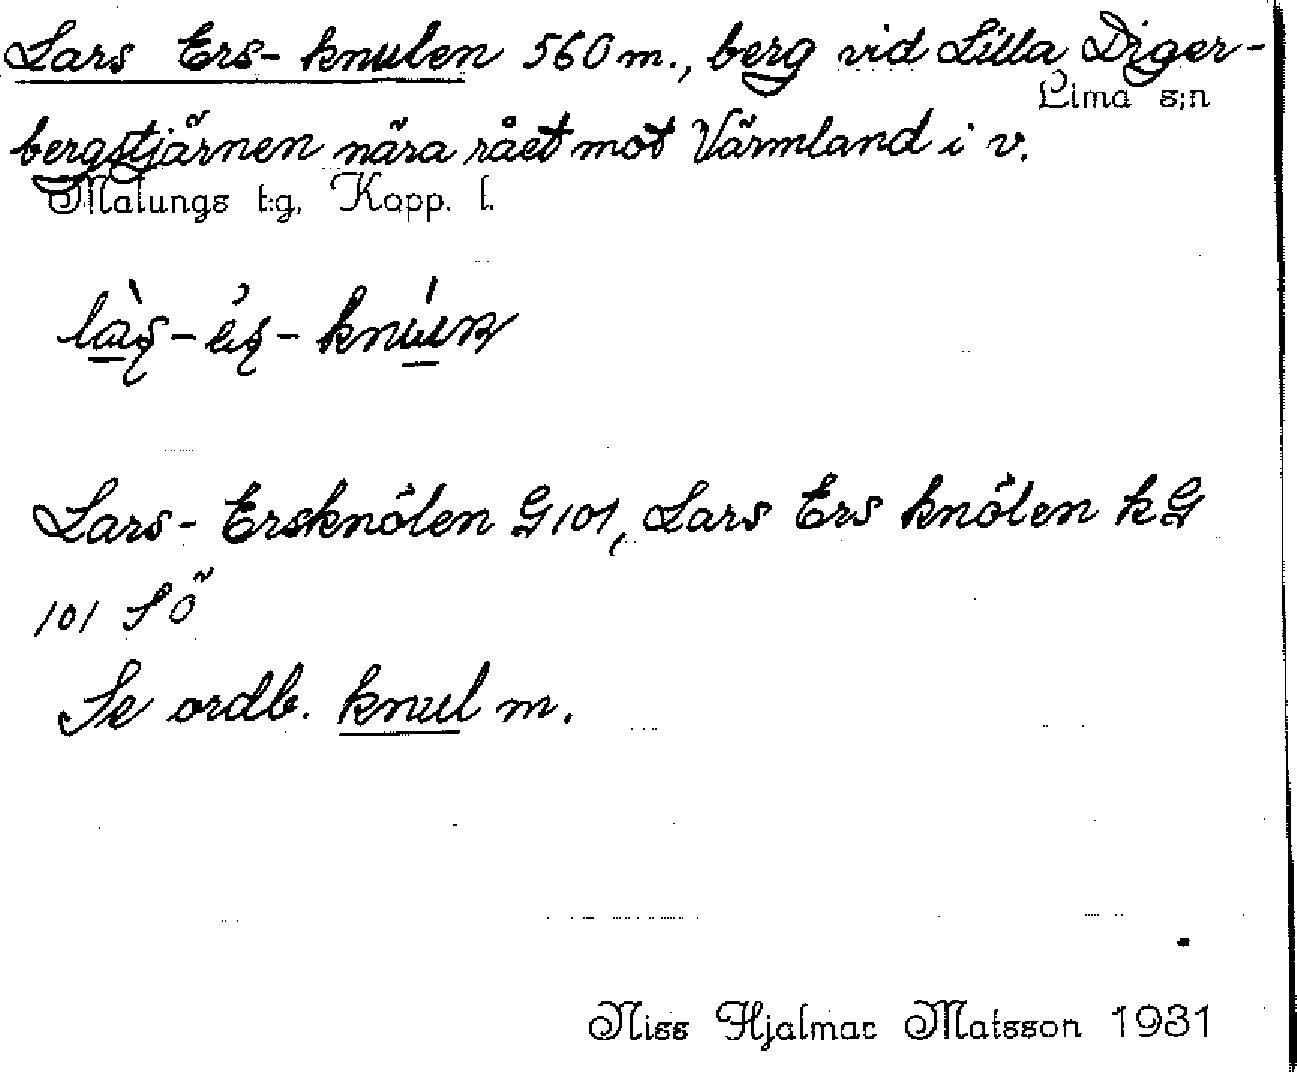 Lars Ers-knulen 560 m., berg vid Lilla Diger-
Lima s:n
bergstjärnen nära rået mot Värmland i v.
Malungs t:g, Kopp. l.
Lars-Ersknölen G 101, Lars Ers knölen kG
101 SÖ
Se ordb. knul m.
Niss Hjalmar Matsson 1931